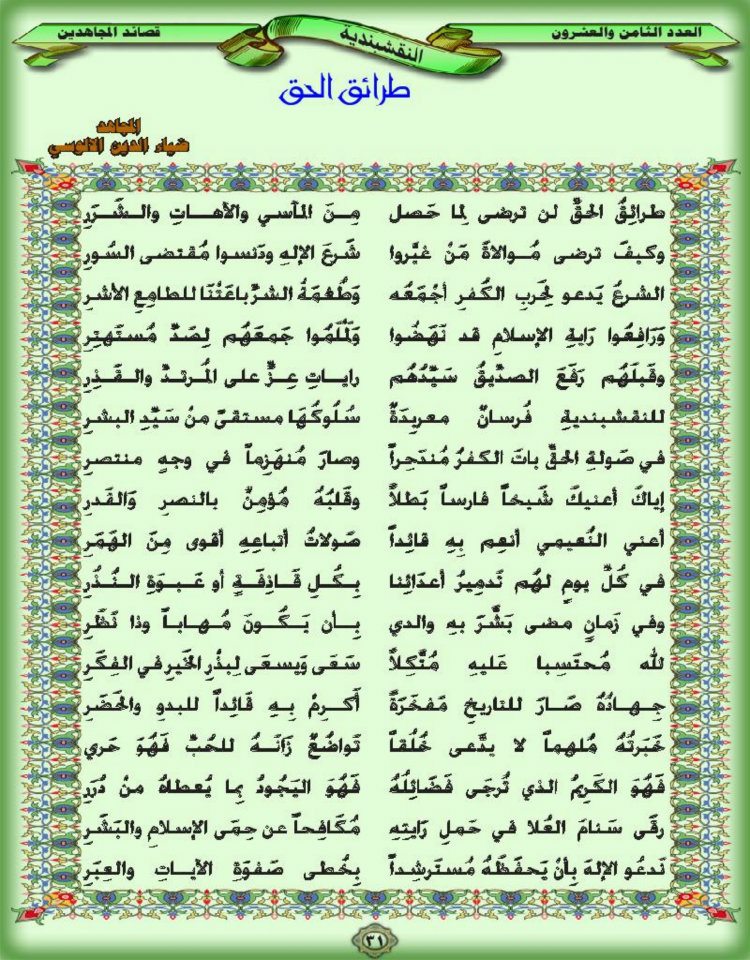 العدد الثامن والعشرون
النقشبندية
قصائد المجاهدين
طرائق الحق
المجاهد
ضياء الدين الآلوسي
طرائقُ الحقِّ لن ترضى لِما حَصل مِنَ المآسي والآهاتِ والشَّرَرِ
وكيفَ ترضى مُوالاةَ مَنْ غيَّروا شَرعَ الإلهِ ودَنسوا مُقتضى السُور
الشرعُ يَدعو لِحَربِ الكُفرِ أجْمَعُه وَطُغمَةُ الشرِّ باعَتْنَا للطامِعِ الأشرِ
وَرَافِعُوا رَايةِ الإسلامِ قد نَهَضُوا وَلَمْلَمُوا جَمعَهُم لِصَدِّ مُستَهتِرِ
وقَبلَهُم رَفَعَ الصدِّيقُ سَيِّدُهُم راياتِ عِزٍّ على المُرتدِّ والقَذِرِ
للنقشبنديةِ فُرسانٌ معربِدَةٌ سُلُوكُهَا مستقىً مِنْ سَيِّدِ البشرِ
في صَولةِ الحقِّ باتَ الكفرُ مُندَحِراً وصارَ مُنهَزِماً في وجهِ منتصرِ
إياكَ أعنيكَ شَيخاً فارساً بَطلاً وقَلبُهُ مُؤمِنٌ بالنصرِ وَالقَدرِ
أعني النُعيمي أنعِم بِهِ قائِداً صَولاتُ أتباعِهِ أقوى مِنَ الهَمَرِ
في كُلِّ يومٍ لهُم تَدمِيرُ أعدَائِنا بِكُلِ قَاذِفَةٍ أو عَبوَةِ النُذُرِ
وفي زَمانٍ مضى بَشَّرَ بِهِ والدي بِأن يَكُونَ مُهاباً وذا نَظَرِ
لله مُحتَسِبا عَليهِ مُتَّكِلاً سَعَى وَيسعَى لِبذُرِ الخَيرِ في الفِكَرِ
جِهادُهُ صَارَ للتاريخِ مَفخَرَةً أكرِمْ بِهِ قَائِداً للبدوِ والحَضَرِ
خَبَرتُهُ مُلهماً لا يدَّعى خُلُقاً تَواضُعٌ زَانَهُ للحُبِّ فَهُوَ حَري
فَهُوَ الكَرِيمُ الذي تُرجَى فَضَائِلُهُ فَهُوَ اليَجُودُ بِما يُعطاهُ مِنْ دُرَرِ
رقَى سَنامَ العُلا في حَملِ رَايتِهِ مُكَافِحاً عن حِمَى الإسلامِ والبَشَرِ
نَدعُو الإلهَ بِأنْ يَحفَظَهُ مُستَرشِداً بِخُطى صَفوَةِ الآياتِ والعِبَرِ
٣١